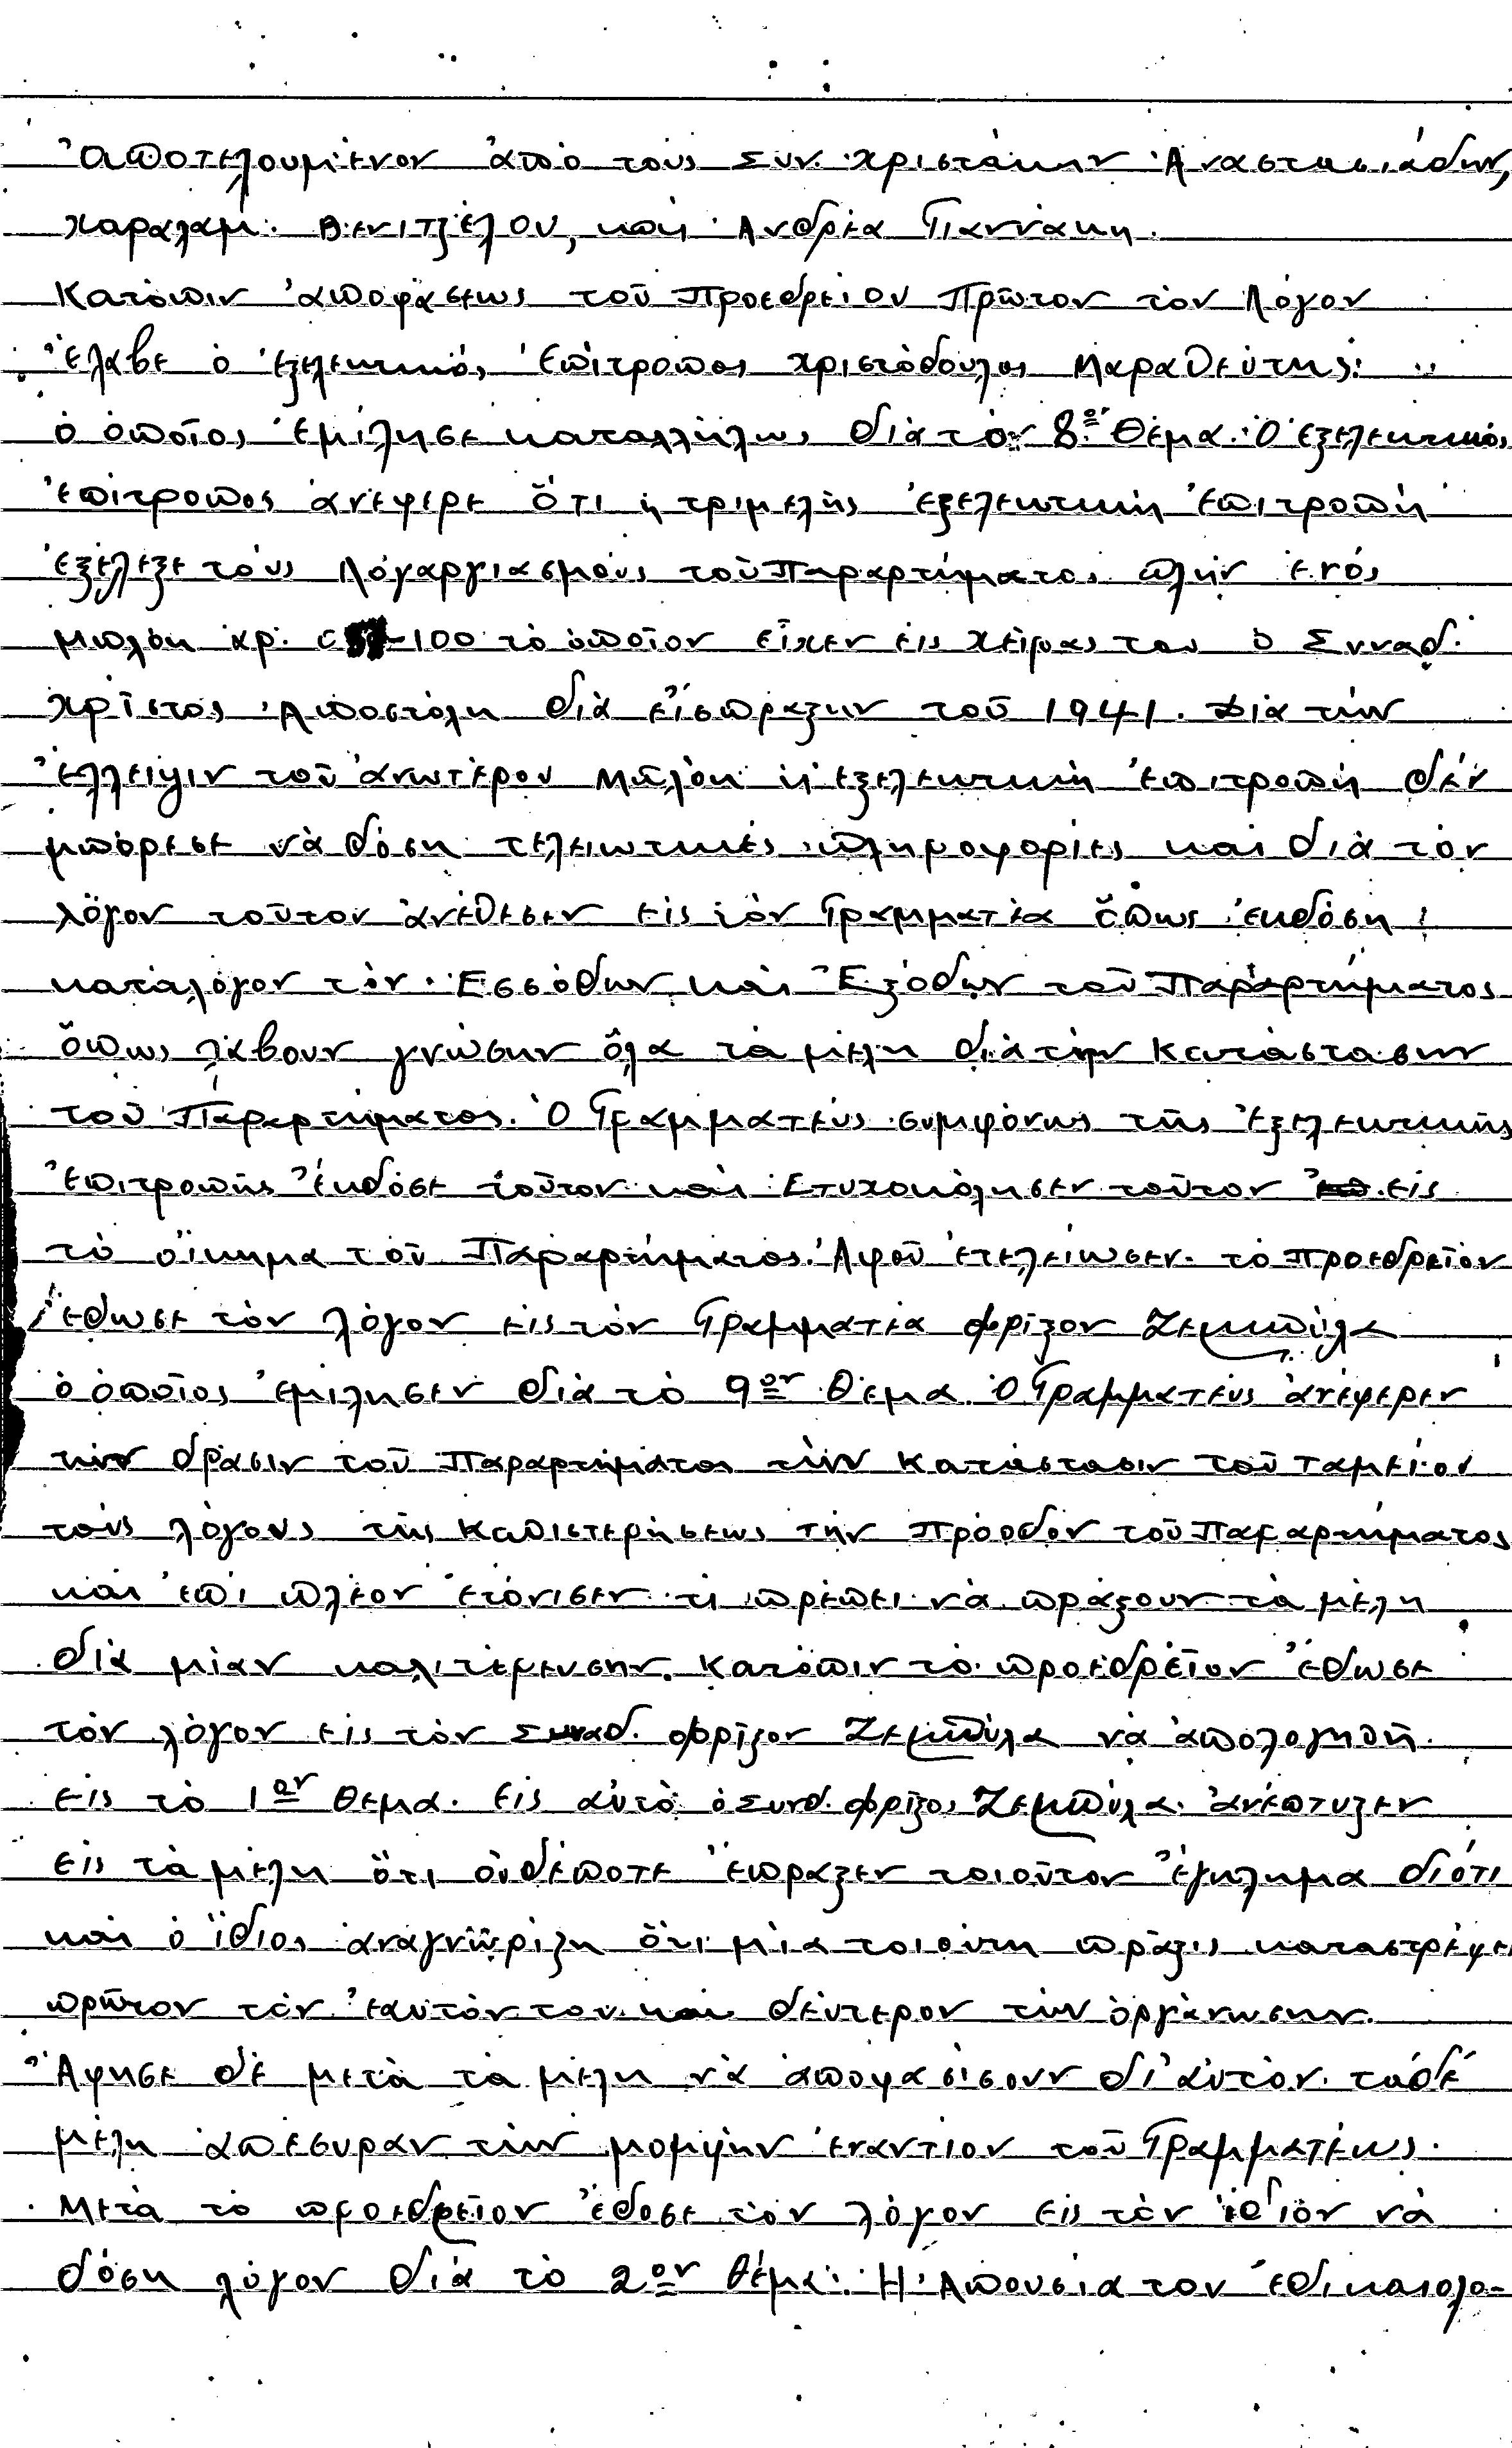 ἀποτελουμένον ἀπὸ τοὺς Συν. Χριστάκην Ἀναστασιάδην,
Χαραλάμ. Βενιτζέλου, καὶ Ἀνδρέα Γιαννάκη.
Κατόπιν ἀποφάσεως τοῦ Προεδρείου Πρῶτον τὸν Λόγον
ἔλαβε ὁ ἐξελεκτικός ἐπίτροπος Χριστόδουλος Μαραθεύτης:
ὁ ὁποῖος ἐμίλησε καταλλήλως διὰ τὸν 8ον θέμα. Ὁ ἐξελεκτικός
ἐπίτροπος ἀνέφερε ὅτι ἡ τριμελὴς ἐξελεκτικὴ ἐπιτροπὴ
ἐξέλεξε τοὺς Λογαργιασμοὺς τοῦ Παραρτήματος πλὴν ἑνὸς
μπλὸκ ἀρ. -100 τὸ ὁποῖον εἶχεν εἰς χεῖρας του ὁ Συναδ.
Χρῖστος Ἀποστόλη διὰ εἴσπραξην τοῦ 1941. Διὰ τὴν
ἔλλειψιν τοῦ ἀνωτέρου Μπλὸκ ἡ ἐξελεκτικὴ ἐπιτροπὴ δὲν
μπόρεσε νὰ δόση τελειωτικὲς πληροφορίες καὶ διὰ τὸν
λόγον τοῦτον ἀνέθεσεν εἰς τὸν Γραμματέα ὅπως ἐκδόση
κατάλόγον τὸν Ἐσσόδων καὶ Ἐξόδων τοῦ Παραρτήματος
ὅπως λάβουν γνώσην ὅλα τὰ μέλη διὰ τὴν Κατάστασην
τοῦ Παραρτήματος. Ὁ Γραμματεὺς συμφόνως τῆς ἐξελεκτικῆς
ἐπιτροπῆς ἐκδόσε τοῦτον καὶ ἐτυχοκόλησεν τοῦτον εἰς
τὸ οἴκημα τοῦ Παραρτήματος. Ἀφοῦ ἐτελείωσεν τὸ Προεδρεῖον
ἔδωσε τὸν λόγον εἰς τὸν Γραμματέα Φρῖξον Ζεμπύλα
ὁ ὁποῖος ἐμίλησεν διὰ τὸ 9ον θέμα. Ὁ Γραμματεὺς ἀνέφερεν
τὴν δρᾶσιν τοῦ Παραρτήματος τὴν Κατάστασιν τοῦ Ταμείου
τοὺς λόγους τῆς Καθιστερήσεως τὴν Πρόοδον τοῦ Παραρτήματος
καὶ ἐπὶ πλέον ἐτόνισεν τι πρέπει νὰ πράξουν τὰ μέλη
διὰ μίαν καλιτέρευσην. Κατόπιν τὸ προεδρεῖον ἔδωσε
τὸν λόγον εἰς τὸν Συναδ. Φρῖξον Ζεμπύλα νὰ ἀπολογηθῆ
εἰς τὸ 1ον θέμα. Εἰς αὐτὸ ὁ Συνδ. Φρῖξος Ζεμπύλα ἀνέπτυξεν
εἰς τὰ μέλη ὅτι οὐδέποτε ἔπραξεν τοιοῦτον ἔγκλημα διότι
καὶ ὁ ἴδιος ἀναγνωρίζη ὅτι μία τοιούτη πρᾶξις καταστρέφει
πρῶτον τὸν ἑαυτόν του καὶ δεύτερον τὴν ὀργάνωσην.
Ἄφησε δὲ μετὰ τὰ μέλη νὰ ἀποφασίσουν δι' αὐτὸν τὰ δὲ
μέλη ἀπέσυραν τὴν μομφὴν ἐναντίον τοῦ Γραμματέως.
Μετὰ τὸ προεδρεῖον ἔδοσε τὸν λόγον εἰς τὸν ἴδιον νὰ
δόση λόγον διὰ τὸ 2ον θέμα. Ἡ Ἀπουσία του ἐδικαιολο-